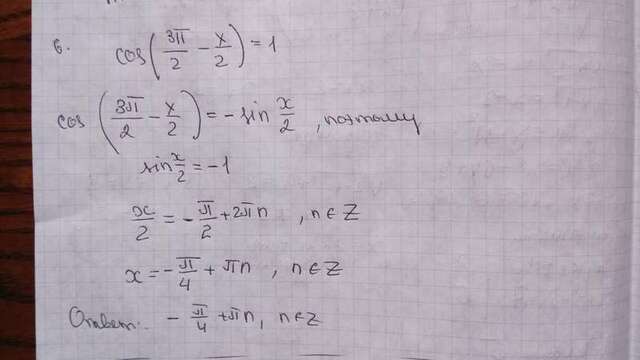 6. cos(3π/2 - x/2) = 1
cos(3π/2 - x/2) = -sin x/2, поэтому
sin x/2 = -1
x/2 = -π/2 + 2πn, n∈Z
x = -π/4 + πn, n∈Z
Ответ: -π/4 + πn, n∈Z